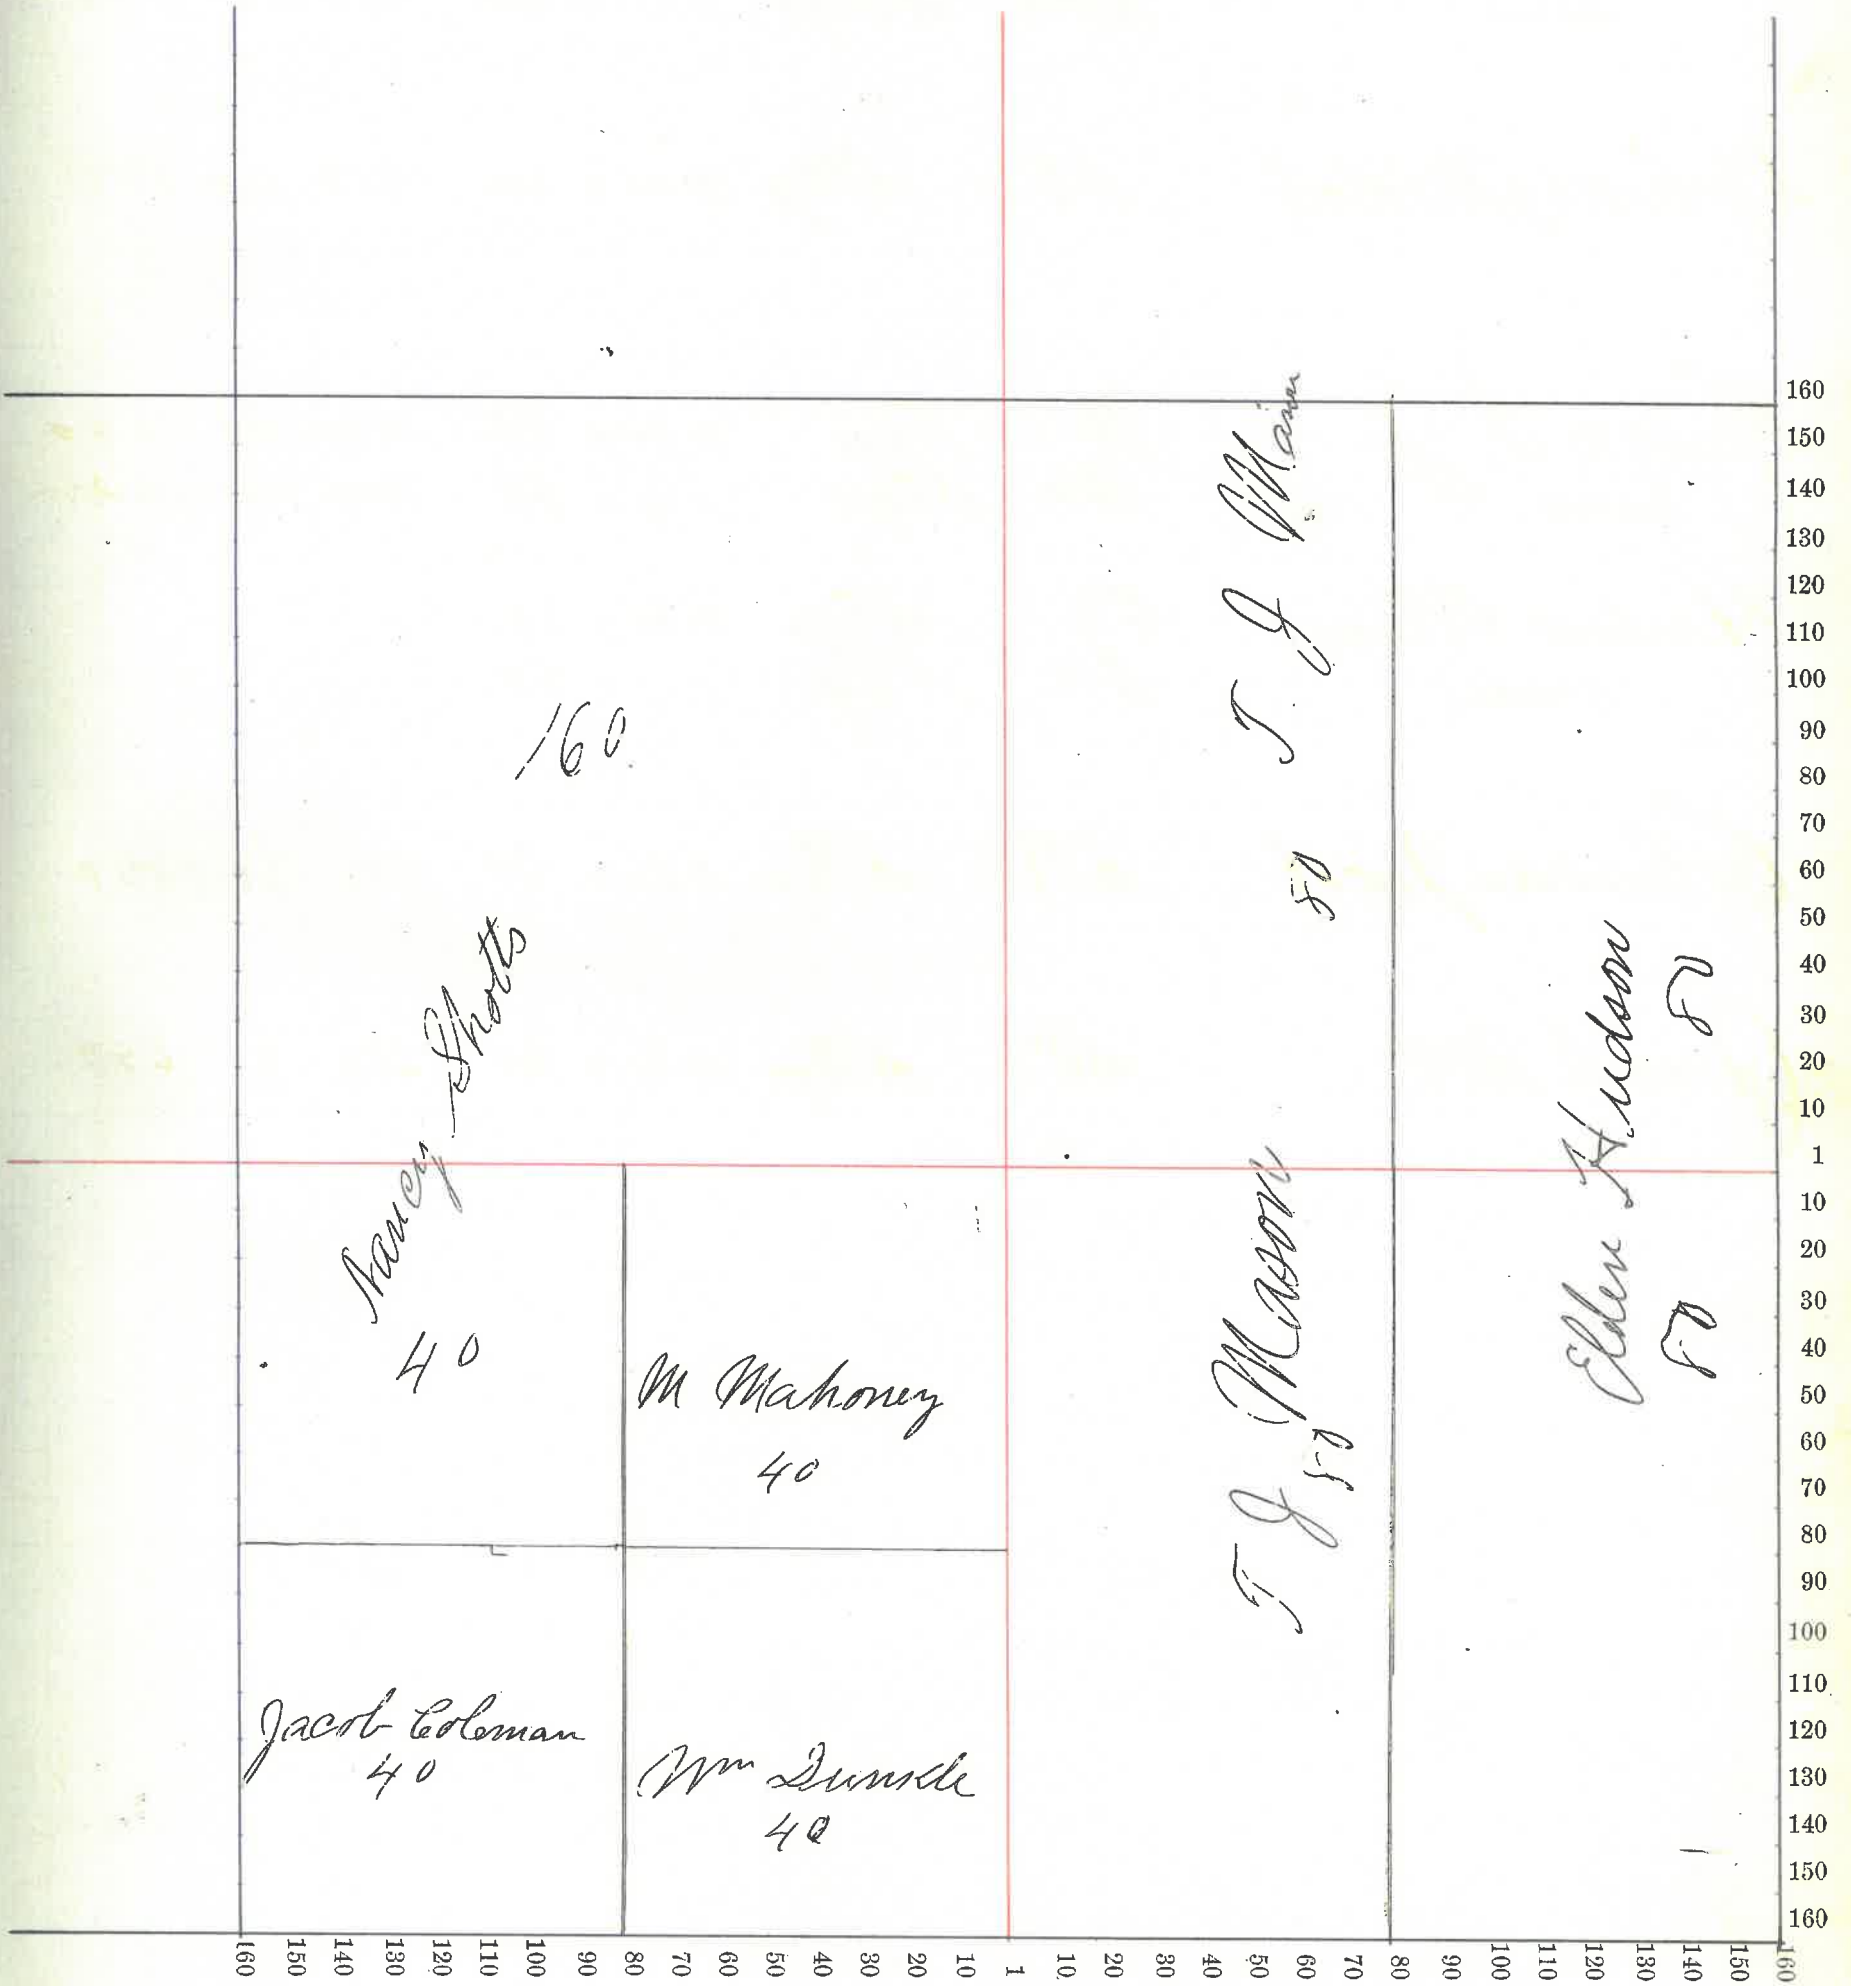 160
Nancy Shotts
40
M Mahoney
40
Jacob Coleman
40
Wm Dunkle
40
T. J
80
T J Mason
80
Elden Hudson
80
80
160
150
140
130
120
110
100
90
80
70
60
50
40
30
20
10
1
10
20
30
40
50
60
70
80
90
100
110
120
130
140
150
160
160 150 140 130 120 110 100 90 80 70 60 50 40 30 20 10 1 10 20 30 40 50 60 70 80 90 100 110 120 130 140 150 160